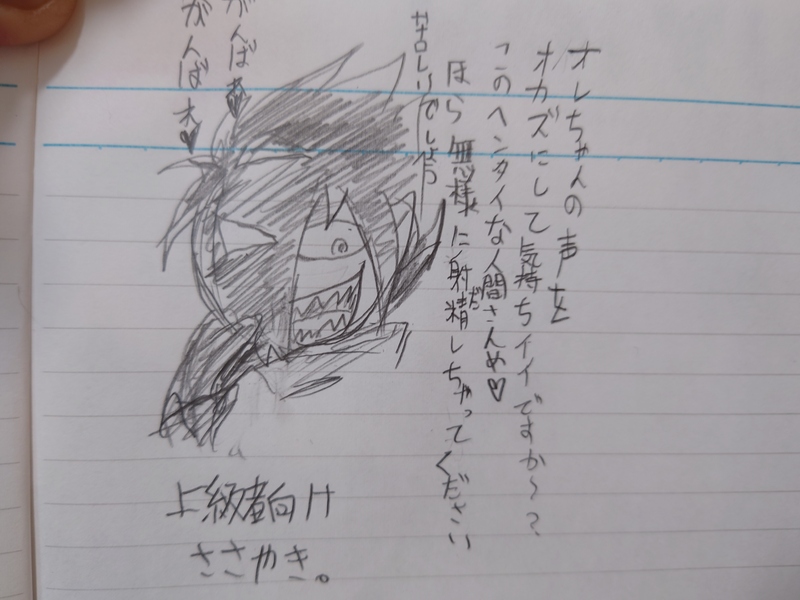 オレちゃんの声を
オカズにして気持ちイイですか～?
このヘンタイな人間さんめ♥
ほら無様に射精しちゃってください
苦しいでしょう
がんばぁ♥
がんばれ♥
上級者向け
ささやき。